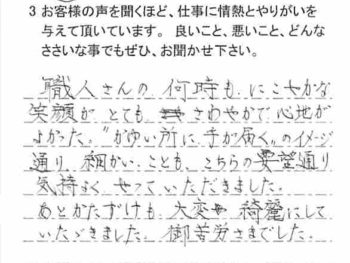 3 お客様の声を聞くほど、仕事に情熱とやりがいを
与えて頂いています。良いこと、悪いこと、どんな
ささいな事でもぜひ、お聞かせ下さい。
職人さんの 何時も にこやかな
笑顔が とても さわやかで 心地が
よかった。"がゆい所に 手が届く"のイメージ
通り、細かいことも、こちらの要望通り
気持よく やっていただきました。
あとかたずけも 大変 綺麗にして
いただきました。御苦労さまでした。